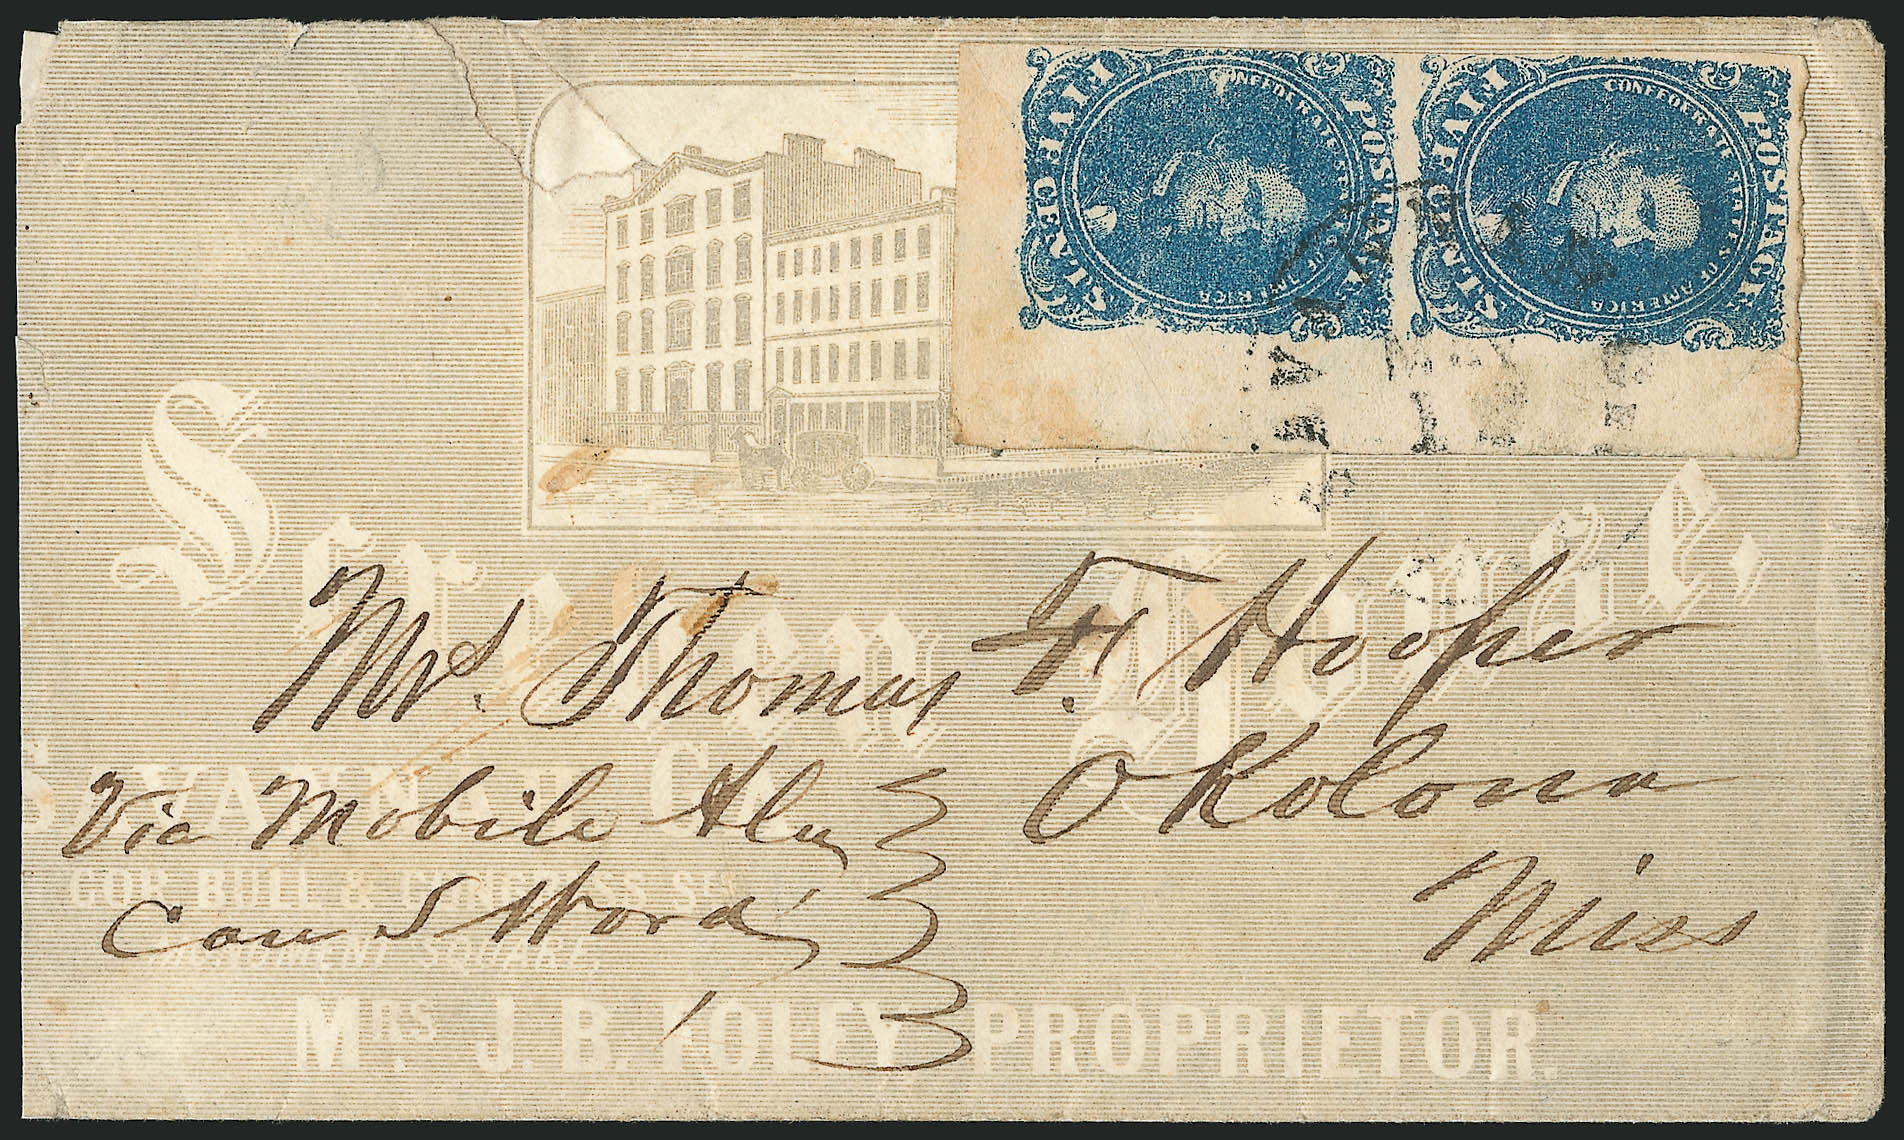 FIVE CENTS
POSTAGE
CONFEDERATE STATES OF AMERICA
FIVE CENTS
POSTAGE
CONFEDERATE STATES OF AMERICA
Screven House.
SAVANNAH GA.
COR. BULL & CONGRESS STS
MONUMENT SQUARE,
MRS. J. B. FOLEY, PROPRIETOR.
Mrs. Thomas F. Hooper
Okolona
Miss
Via Mobile Ala